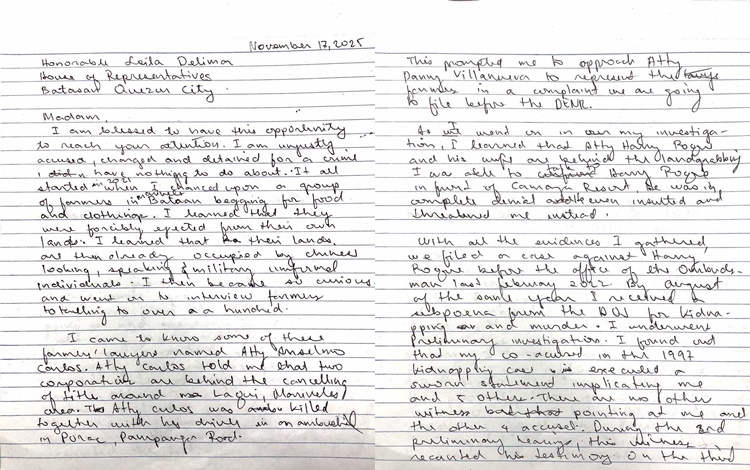 November 17, 2025
Honorable Leila Delima
House of Representatives
Batasan Quezon City.
Madam,
I am blessed to have this opportunity
to reach your attention. I am unjustly
accused, charged and detained for a crime
I didn have nothing to do about. It all
started in 2021 when I chanced upon a group
of farmers in Mariveles Bataan begging for food
and clothings. I learned that they
were forcibly ejected from their own
lands. I learned that their lands
are then already occupied by chinese
looking, speaking & military uniformed
individuals. I then became so curious
and went on to interview farmers
totalling to over a hundred.
I came to know some of these
farmers' lawyers named Atty Anselmo
Carlos. Atty Carlos told me that two
corporation are behind the cancelling
of title around Lagui, Mariveles
area. Atty Carlos was killed
together with his driver in an ambush
in Porac, Pampanga Road.
This prompted me to approach Atty
Danny Villanueva to represent the
farmers in a complaint we are going
to file before the DENR.
As I went on in my investiga-
tion, I learned that Atty Harry Roque
and his wife are behind the landgrabbing
I was able to Harry Roque
in front of Camaya Resort. He was in
complete denial and even insulted and
threatened me instead.
With all the evidences I gathered,
we filed a case against Harry
Roque before the office of the Ombuds-
man last february 2022. By August
of the same year I received a
subpoena from the DOJ for kidna-
pping and murder. I underwent
preliminary investigation. I found out
that my co-accused in the 1997
kidnapping case executed a
sworn statement implicating me
and 5 other. There are no other
witness pointing at me and
the other 4 accused. During the 3rd
preliminary hearing, this witness
recanted his testimony. On the third